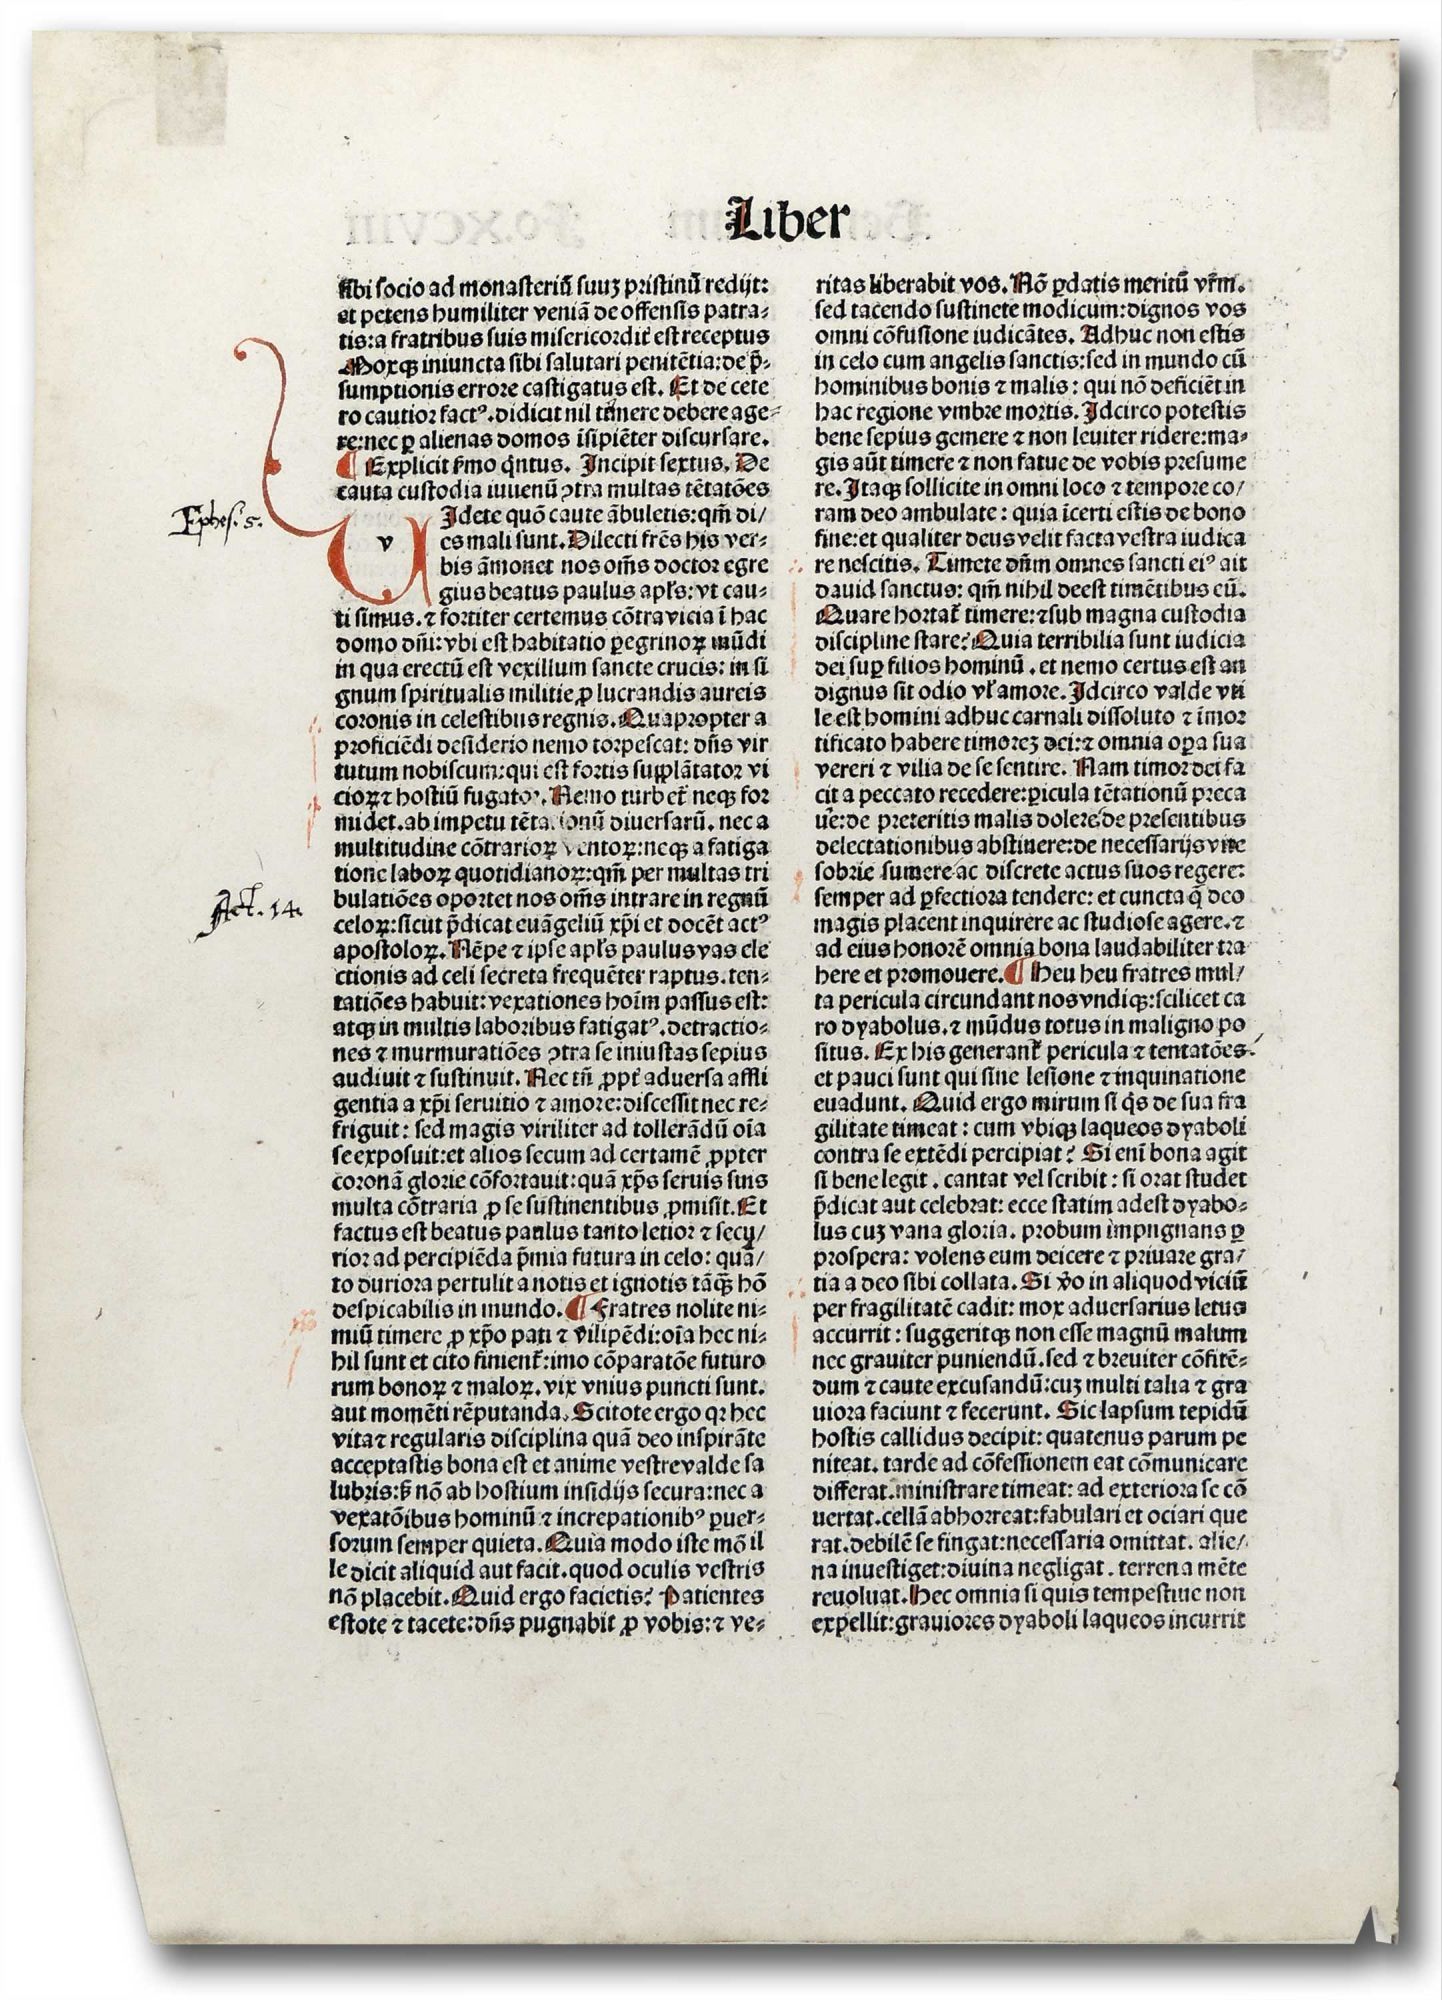 Liber
sibi socio ad monasteriū suuꝫ pristinū redijt:
et petens humiliter veniā de offensis patra⸗
tis: a fratribus suis misericordit̉ est receptus
Moxqꝫ iniuncta sibi salutari penitētia: de p̄⸗
sumptionis errore castigatus est. Et de cete
ro cautior factꝰ. didicit nil temere debere age⸗
re: nec ꝑ alienas domos īsipiēter discursare.
¶ Explicit ṗmo q̇ntus. Incipit sextus. De
cauta custodia iuuenū ꝯtra multas tētatōes
Ephes. 5.
v
Idete quō caute ābuletis: qm̄ di/
es mali sunt. Dilecti frēs his ver⸗
bis āmonet nos om̄s doctor egre
gius beatus paulus apl̄s: vt cau⸗
ti simus. ⁊ fortiter certemus cōtra vicia ī hac
domo dn̄i: vbi est habitatio ꝑegrinoꝝ mūdi
in qua erectū est vexillum sancte crucis: in si
gnum spiritualis militie ꝓ lucrandis aureis
coronis in celestibus regnis. Quapropter a
proficiēdi desiderio nemo torpescat: dn̄s vir
tutum nobiscum: qui est fortis supplātator vi
cioꝝ ⁊ hostiū fugator. Nemo turbet̉ neqꝫ for
midet. ab impetu tētationū diuersarū. nec a
multitudine cōtrarioꝝ ventoꝝ: neqꝫ a fatiga
tione laboꝝ quotidianoꝝ: qm̄ per multas tri
bulatiōes oportet nos om̄s intrare in regnū
Act. 14.
celoꝝ: sicut p̄dicat euāgeliū xp̄i et docēt actꝰ
apostoloꝝ. Nēpe ⁊ ipse apl̄s paulus vas ele
ctionis ad celi secreta frequēter raptus. ten⸗
tatiōes habuit: vexationes hoīm passus est:
atqꝫ in multis laboribus fatigatꝰ. detractio⸗
nes ⁊ murmuratiōes ꝯtra se iniustas sepius
audiuit ⁊ sustinuit. Nec tn̄ ꝓpt̉ aduersa affli
gentia a xp̄i seruitio ⁊ amore: discessit nec re⸗
friguit: sed magis viriliter ad tollerādū oīa
se exposuit: et alios secum ad certamē ꝓpter
coronā glorie cōfortauit: quā xp̄s seruis suis
multa cōtraria ꝓ se sustinentibus ꝓmisit. Et
factus est beatus paulus tanto letior ⁊ secu/
rior ad percipiēda p̄mia futura in celo: quā/
to duriora pertulit a notis et ignotis tāqꝫ hō
despicabilis in mundo. ¶ Fratres nolite ni⸗
miū timere ꝓ xp̄o pati ⁊ vilipēdi: oīa hec ni⸗
hil sunt et cito finient̉: imo cōparatōe futuro
rum bonoꝝ ⁊ maloꝝ. vix vnius puncti sunt.
aut momēti rēputanda. Scitote ergo qꝛ hec
vita ⁊ regularis disciplina quā deo inspirāte
acceptastis bona est et anime vestre valde sa
lubris: sꝫ nō ab hostium insidijs secura: nec a
vexatōibus hominū ⁊ increpationibꝰ ꝑuer⸗
sorum semper quieta. Quia modo iste mō il
le dicit aliquid aut facit. quod oculis vestris
nō placebit. Quid ergo facietis? Patientes
estote ⁊ tacete: dn̄s pugnabit ꝓ vobis: ⁊ ve⸗
ritas liberabit vos. Nō ꝑdatis meritū vr̄m.
sed tacendo sustinete modicum: dignos vos
omni cōfusione iudicātes. Adhuc non estis
in celo cum angelis sanctis: sed in mundo cū
hominibus bonis ⁊ malis: qui nō deficiēt in
hac regione vmbre mortis. Idcirco potestis
bene sepius gemere ⁊ non leuiter ridere: ma⸗
gis aūt timere ⁊ non fatue de vobis presume
re. Itaqꝫ sollicite in omni loco ⁊ tempore co/
ram deo ambulate: quia īcerti estis de bono
fine: et qualiter deus velit facta vestra iudica
re nescitis. Timete dn̄m omnes sancti eiꝰ ait
dauid sanctus: qm̄ nihil deest timētibus eū.
Quare hortat̉ timere: ⁊ sub magna custodia
discipline stare? Quia terribilia sunt iudicia
dei suꝑ filios hominū. et nemo certus est an
dignus sit odio vl̉ amore. Idcirco valde vti
le est homini adhuc carnali dissoluto ⁊ īmor
tificato habere timoreꝫ dei: ⁊ omnia oꝑa sua
vereri ⁊ vilia de se sentire. Nam timor dei fa
cit a peccato recedere: ꝑicula tētationū preca
uēe: de preteritis malis dolere: de presentibus
delectationibus abstinere: de necessarijs vite
sobrie sumere ac discrete actus suos regere:
semper ad ꝑfectiora tendere: et cuncta q̄ deo
magis placent inquirere ac studiose agere. ⁊
ad eius honorē omnia bona laudabiliter tra
here et promouere. ¶ Heu heu fratres mul/
ta pericula circundant nos vndiqꝫ: scilicet ca
ro dyabolus. ⁊ mūdus totus in maligno po
situs. Ex his generant̉ pericula ⁊ tentatōes.
et pauci sunt qui sine lesione ⁊ inquinatione
euadunt. Quid ergo mirum si q̇s de sua fra
gilitate timeat: cum vbiqꝫ laqueos dyaboli
contra se extēdi percipiat? Si enī bona agit
si bene legit. cantat vel scribit: si orat studet
p̄dicat aut celebrat: ecce statim adest dyabo⸗
lus cuꝫ vana gloria. probum impugnans ꝑ
prospera: volens eum deicere ⁊ priuare gra/
tia a deo sibi collata. Si v̉o in aliquod viciū
per fragilitatē cadit: mox aduersarius letus
accurrit: suggeritqꝫ non esse magnū malum
nec grauiter puniendū. sed ⁊ breuiter cōfitē⸗
dum ⁊ caute excusandū: cuꝫ multi talia ⁊ gra
uiora faciunt ⁊ fecerunt. Sic lapsum tepidū
hostis callidus decipit: quatenus parum pe
niteat. tarde ad cōfessionem eat cōmunicare
differat. ministrare timeat: ad exteriora se cō
uertat. cellā abhorreat: fabulari et ociari que
rat. debilē se fingat: necessaria omittat. alie/
na inuestiget: diuina negligat. terrena mēte
reuoluat. Hec omnia si quis tempestiue non
expellit: grauiores dyaboli laqueos incurrit